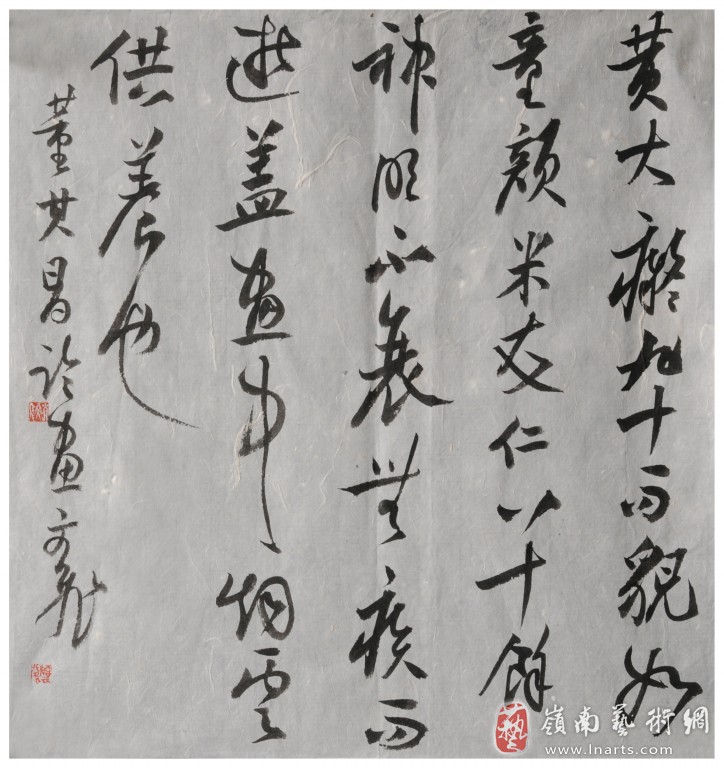 黄大癡九十而貌如
童顔米友仁八十餘
神明不衰無疾而
逝盖畫中烟雲
供養也
董其昌論畫
嶺南藝術網
www.lnarts.com